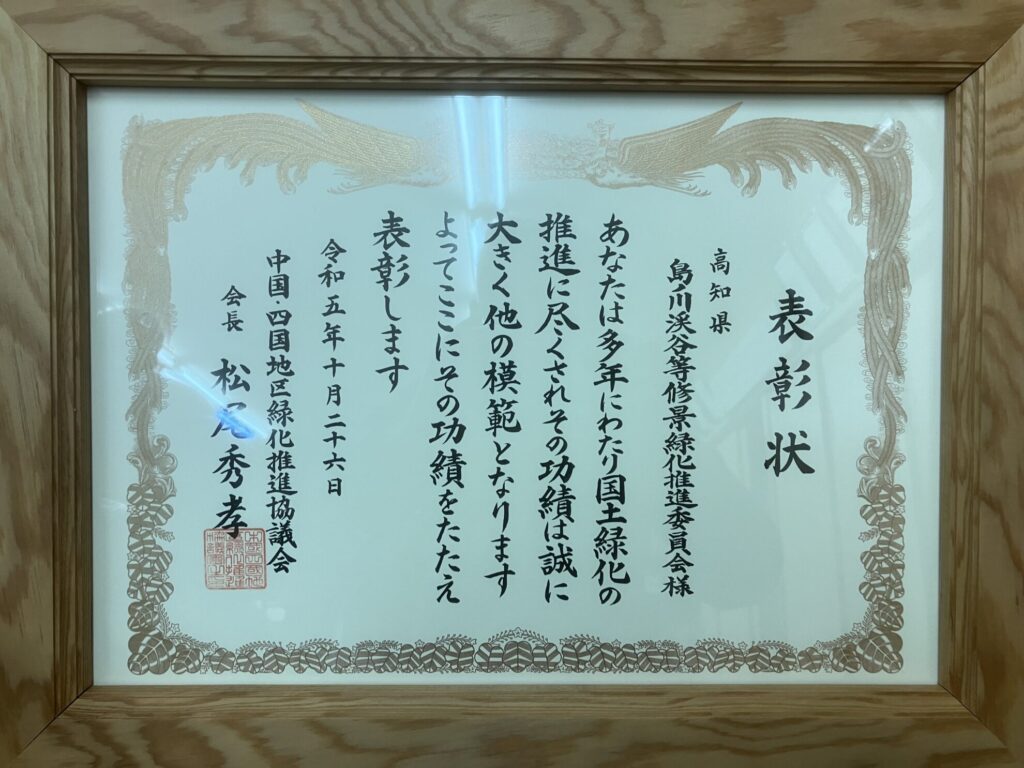 表彰状
高知県
島川渓谷等修景緑化推進委員会様
あなたは多年にわたり国土緑化の
推進に尽くされその功績は誠に
大きく他の模範となります
よってここにその功績をたたえ
表彰します
令和五年十月二十六日
中国・四国地区緑化推進協議会
会長 松尾秀孝